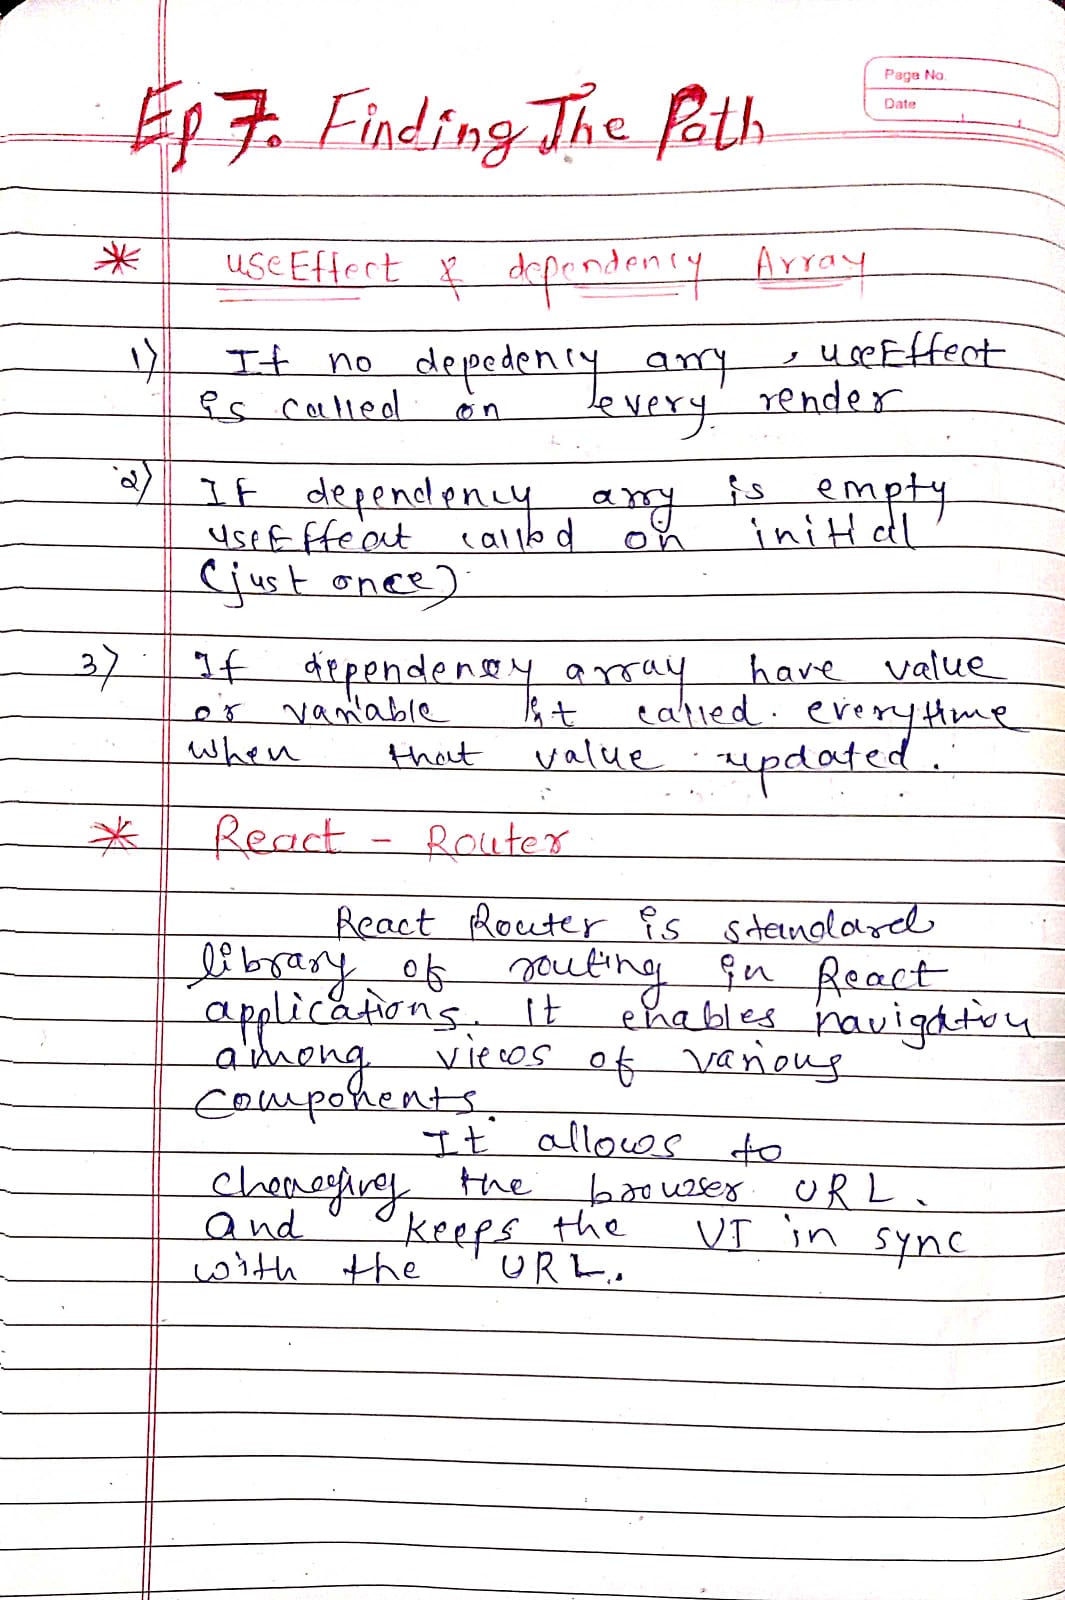 Page No.
Date
Ep 7. Finding The Path
* useEffect & dependency Array
1) If no depedency arry, useEffect
is called on every render
2) If dependency arry is empty
useEffect called on initial
(just once)
3) If dependency array have value
or variable it called everytime
when that value updated.
* React - Router
React Router is standard
library of routing in React
applications. It enables navigation
among views of various
components.
It allows to
changing the browser URL.
and keeps the UI in sync
with the URL.